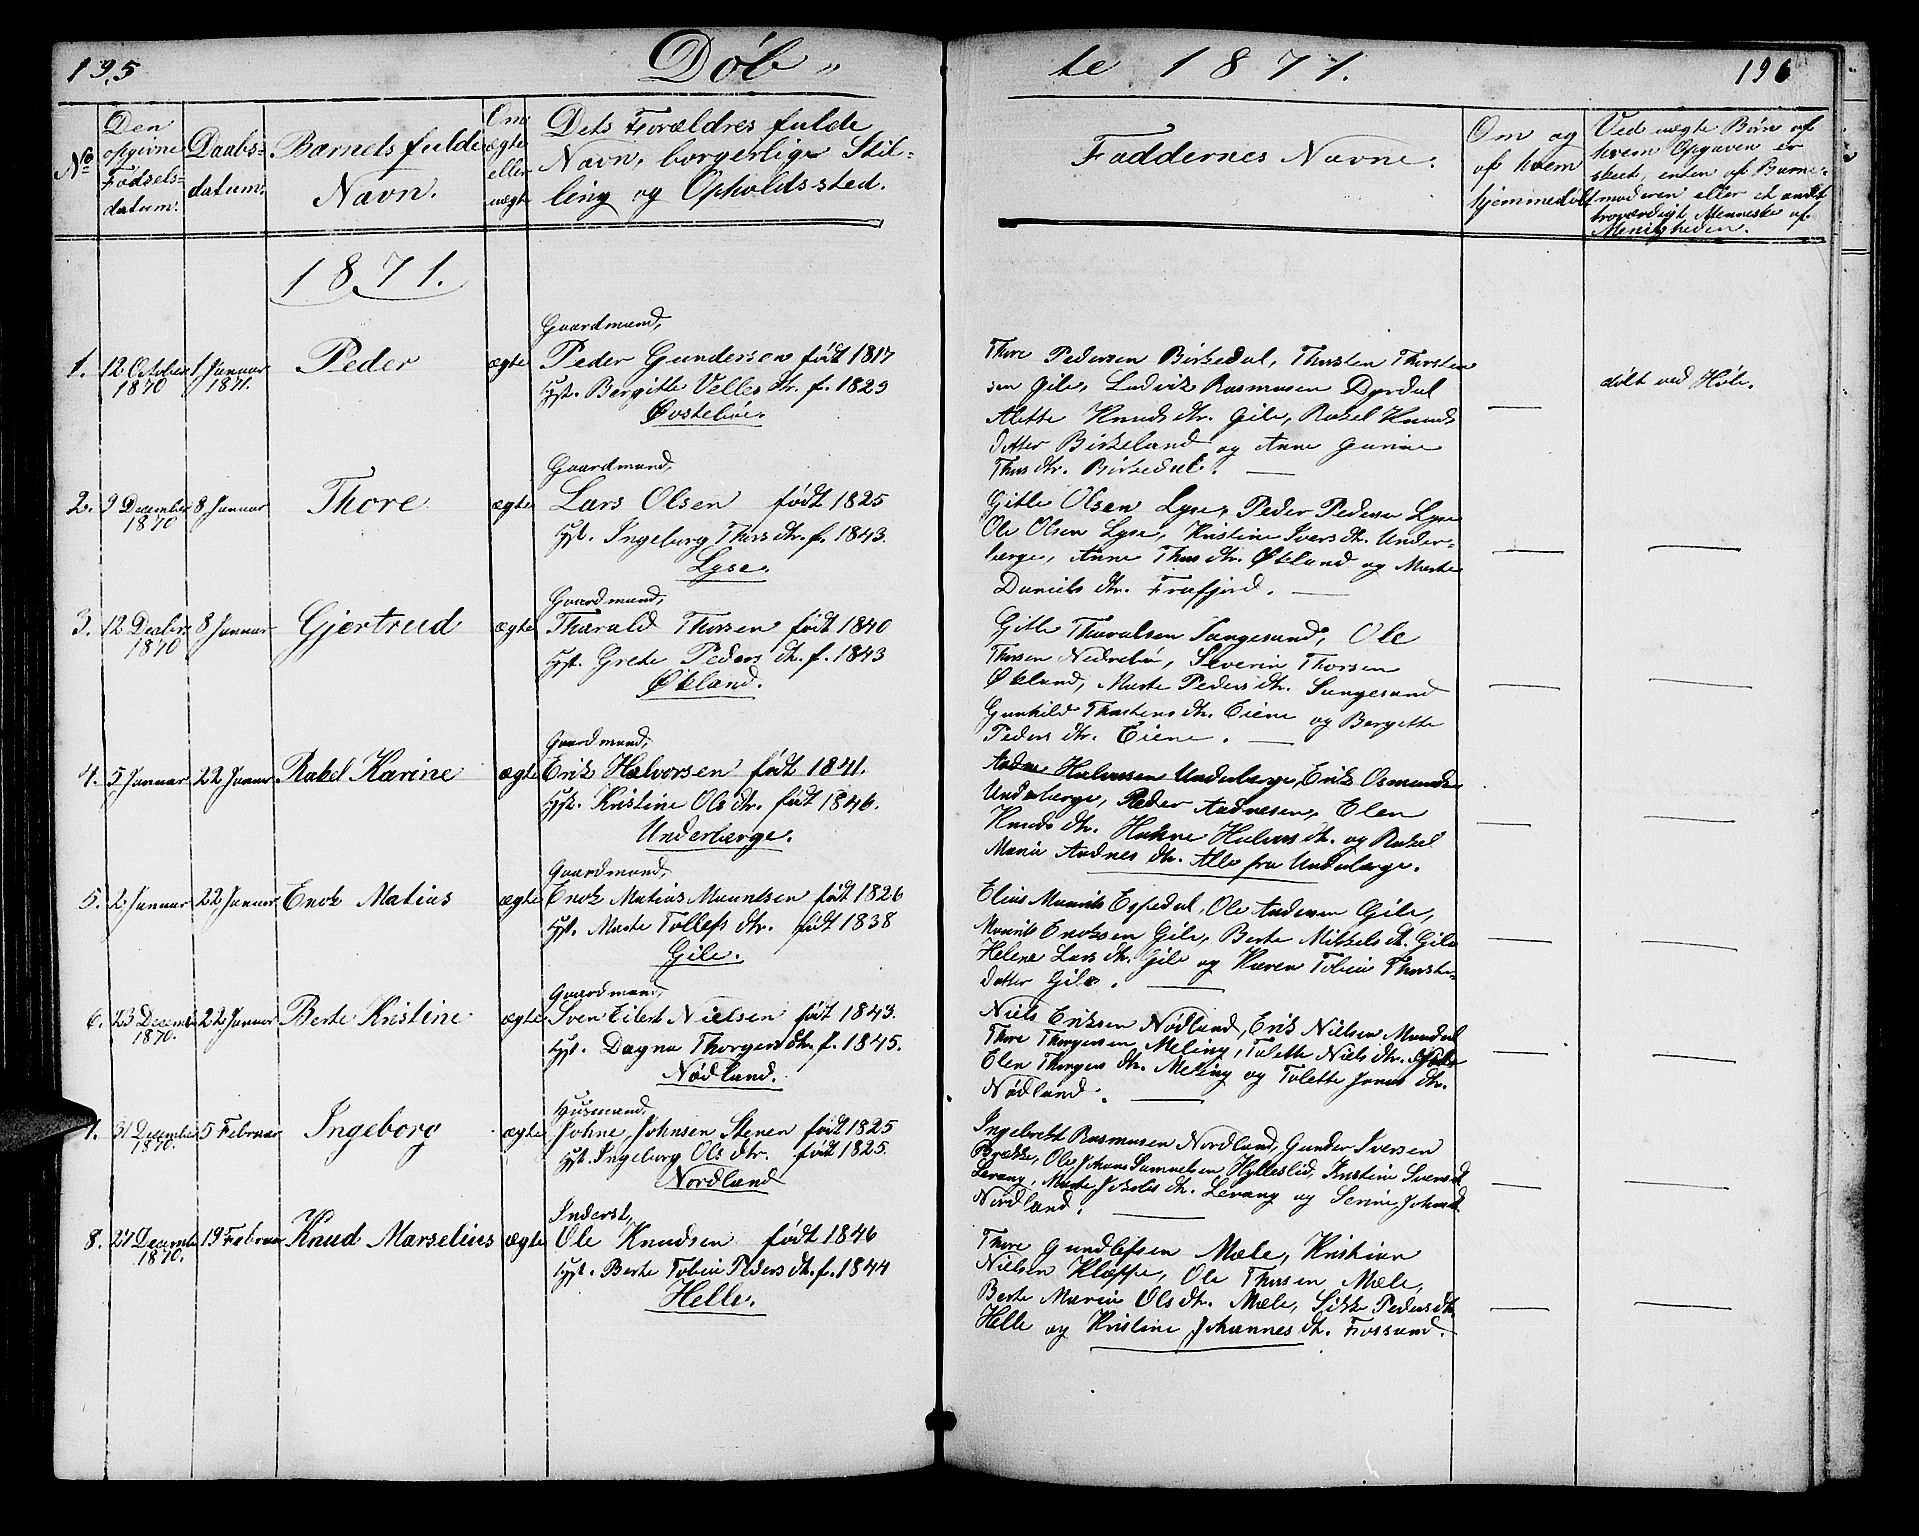 195 Døb„
te 1871. 196
No
Den opgivne Fødsels-datum.
Daabs-datum.
Barnets fulde Navn.
Om ægte eller uægte
Dets Forældres fulde
Navn, borgerlige Stil-
ling og Opholdssted.
Faddernes Navne.
Om og af hvem hjemmedøbt
Ved uægte Børn af
hvem Opgaven er
skeet, enten af Barne-
moderen eller et andet
troværdigt Menneske af
Menigheden.
1871.
Gaardmand,
1. 12 October 1870 1 Januar 1871. Peder ægte Peder Gundersen født 1817
Hst. Bergitte Velles dtr. f. 1829
Øvstebøe.
Thore Pedersen Birkedal, Thorsten Thorsten
sen Gile, Ludvik Rasmusen Dyrdal
Alette Knuds dtr. Gile, Rakel Knuds
datter Birkeland og Anne Gurine
Thors dtr. Birkedal. —
— døbt ved Høle.
Gaardmand,
2. 9 December 1870 8 Januar Thore ægte Lars Olsen født 1825
Hst. Ingeborg Thors dtr. f. 1843.
Lyse.
Gitle Olsen Lyse, Peder Pedersen Lyse
Ole Olsen Lyse, Kristine Ivers dt. Under-
berge, Anne Thors dtr. Økland og Marte
Daniels dtr. Frafjord. —
— —
Gaardmand,
3. 12 Decbr. 1870 8 Januar Gjertrud ægte Tharald Thorsen født 1840
Hst. Grete Peders dt. f. 1843
Økland.
Gitle Tharalsen Sangesand, Ole
Thorsen Nedrebø, Severin Thorsen
Økland, Marte Peders dt. Sangesand
Gunhild Thorstens dtr. Eiene og Bergette
Peders dtr. Eiene. —
— —
Gaardmand,
4. 5 Januar 22 Januar Rakel Karine ægte Erik Halvorsen født 1841.
Hst. Kristine Ols dtr. født 1846.
Underberge.
Andre Halvorsen Underberge, Erik Osmundsen
Underberge, Peder Andresen, Elen
Knuds dtr. Halvors dt. og Rakel
Maria Andres dtr. Alle fra Underberge.
— —
Gaardmand,
5. 2 Januar 22 Januar Enok Matias ægte Enok Matias Mauritsen født 1826
Hst. Marte Tollefs dtr. født 1838
Gile.
Elias Maurits Espedal, Ole Andersen Gile,
Maurits Enoksen Gile, Berte Mikkels dt. Gile
Helene Lars dtr. Gile og Karen Tobia Thorste-
datter Gile. —
— —
Gaardmand,
6. 23 Decemb 1870. 22 Januar Berte Kristine ægte Sven Eilert Nielsen født 1843.
Hst. Dagna Thorgers dtr. f. 1845.
Nødland.
Niels Eriksen Nødland, Erik Nielsen Mandal
Thore Thorgersen Meling, Tolette Niels dtr.
Elen Thorgers dtr. Meling og Tolette Jonas dtr.
Nødland. —
— —
Husmand,
7. 31 December 1870. 5 Februar Ingeborg ægte Johne Johnsen Stenen født 1825
Hst. Ingeborg Ols dtr. født 1825.
Nordland
Ingebret Rasmusen Nordland, Gunder Iversen
Brække, Ole Johans Samuelsen Hylleslid, Kristine Svens dt
Levang, Marte Jakobs dtr. Levang og Serine Johns dt
Nordland. —
— —
Inderst,
8. 27 Decemb 1870. 19 Februar Knud Marselius ægte Ole Knudsen født 1846
Hst. Berte Tobia Peders dt. f. 1844
Helle.
Thore Gundlefsen Mæle, Kristian
Nielsen Klæppe, Ole Thorsen Mæle,
Berte Maria Ols dtr. Mæle, Sikke Peders dt
Helle og Kristine Johannes dtr. Fossand.
— —